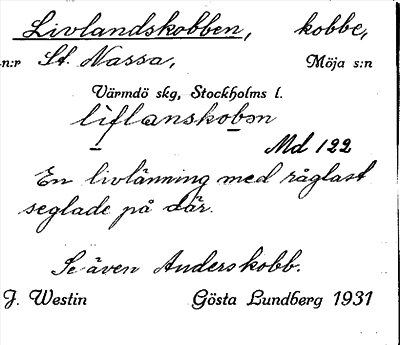 Livlandskobben, kobbe,
n:r St. Nassa, Möja s:n
Värmdö skg, Stockholms l.
liflanskobən
Md 122
En livlänning med råglast
seglade på där.
Se även Anderskobb.
J. Westin Gösta Lundberg 1931